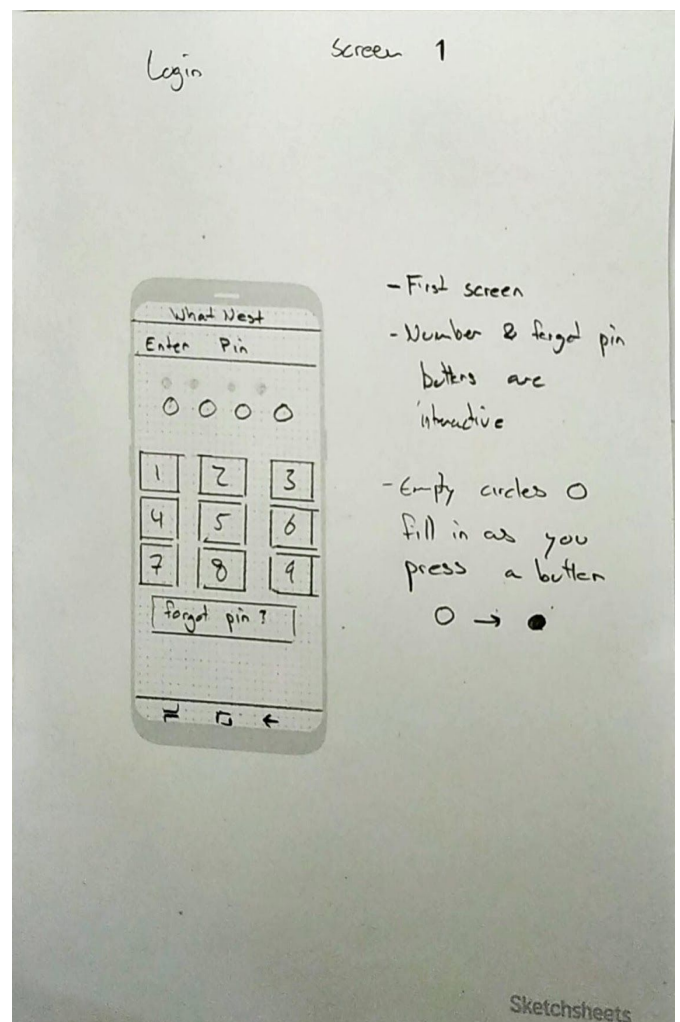 Login
Screen 1
What Nest
Enter Pin
1 2 3
4 5 6
7 8 9
forgot pin ?
- First screen
- Number & forgot pin
buttons are
interactive
- Empty circles O
fill in as you
press a button
Sketchsheets